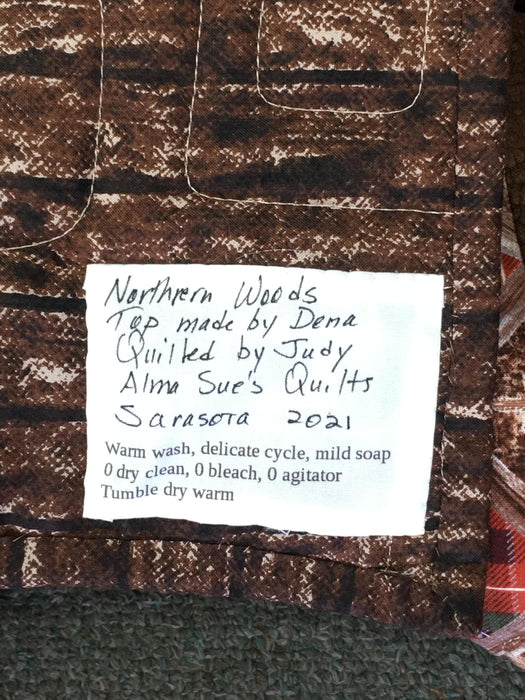 Northern Woods
Top made by Dena
Quilted by Judy
Alma Sue's Quilts
Sarasota 2021
Warm wash, delicate cycle, mild soap
0 dry clean, 0 bleach, 0 agitator
Tumble dry warm